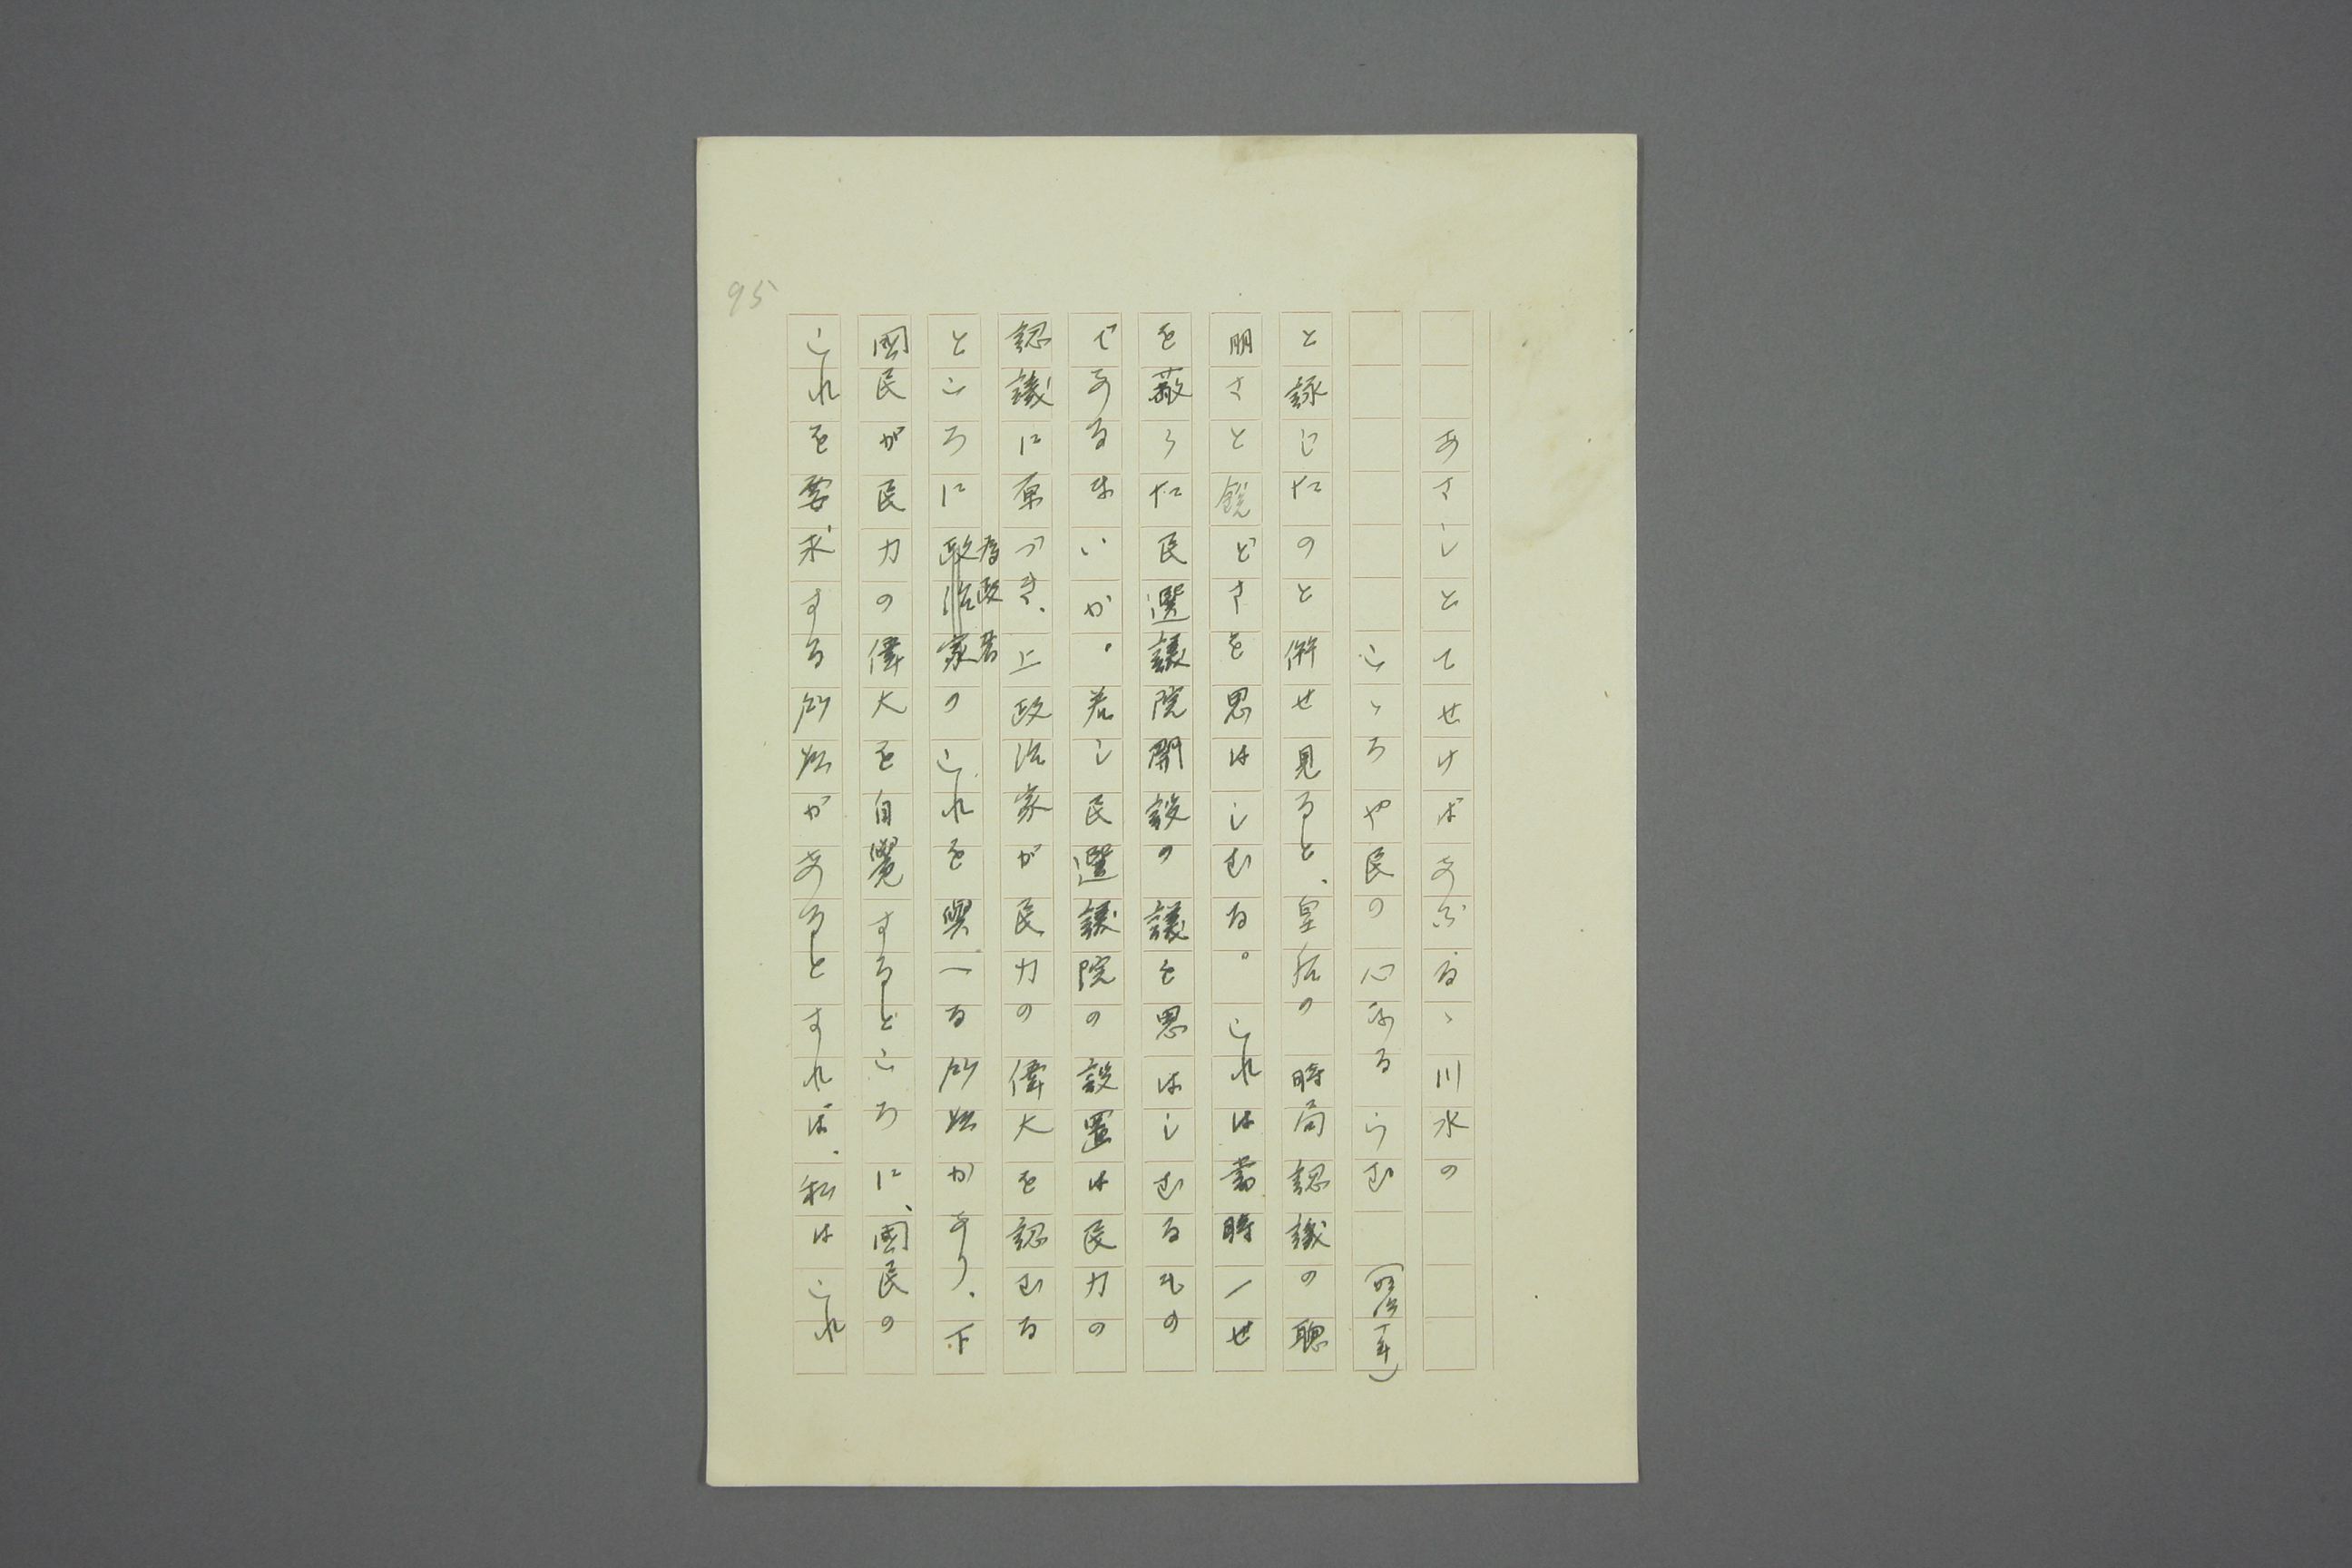 95
あさしとてせけばあふるゝ川水の
こゝろや民の心なるらむ (明治十年)
と詠じたのと併せ見ると、皇后の時局認識の聰
明さと鋭どさを思はしむる。これは當時一せ
を蔽うた民選議院開設の議を思はしむるもの
であるまいか。若し民選議院の設置は民力の
認識に原づき、上政治家が民力の偉大を認むる
ところに爲政者のこれを與へる所以があり、下
國民が民力の偉大を自覺するところに、國民の
これを要求する所以があるとすれば、私はこれ